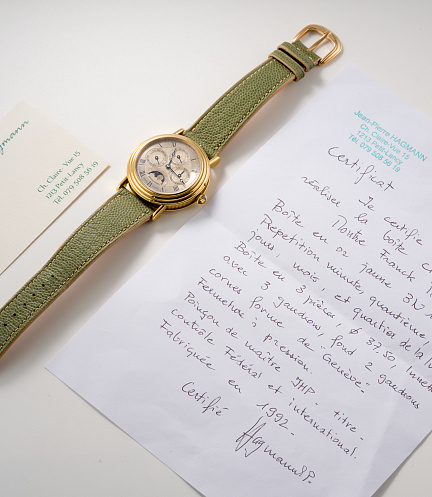 agmann
Ch. Claire-Vue 15
1213 Petit-Lancy
Tél. 079 508 56 19
Jean-Pierre HAGMANN
Ch. Claire-Vue 15
1213 Petit-Lancy
Tél. 079 508 56 19
Certificat
Je certifie
réaliser la boîte
Montre Franck
Boîte en or jaune 3N
Répétition minute, quantième
jours, mois, et quartier de la
Boîte en 3 pièces, ϕ 37.50, lunette
avec 3 gaudrons, fond 2 gaudrons
cornes forme de Genève-
Fermeture à pression.
Poinçon de maître JHP - titre-
contrôle Fédéral et international.
Fabriquée en 1992-
Certifié
Hagmann JP.